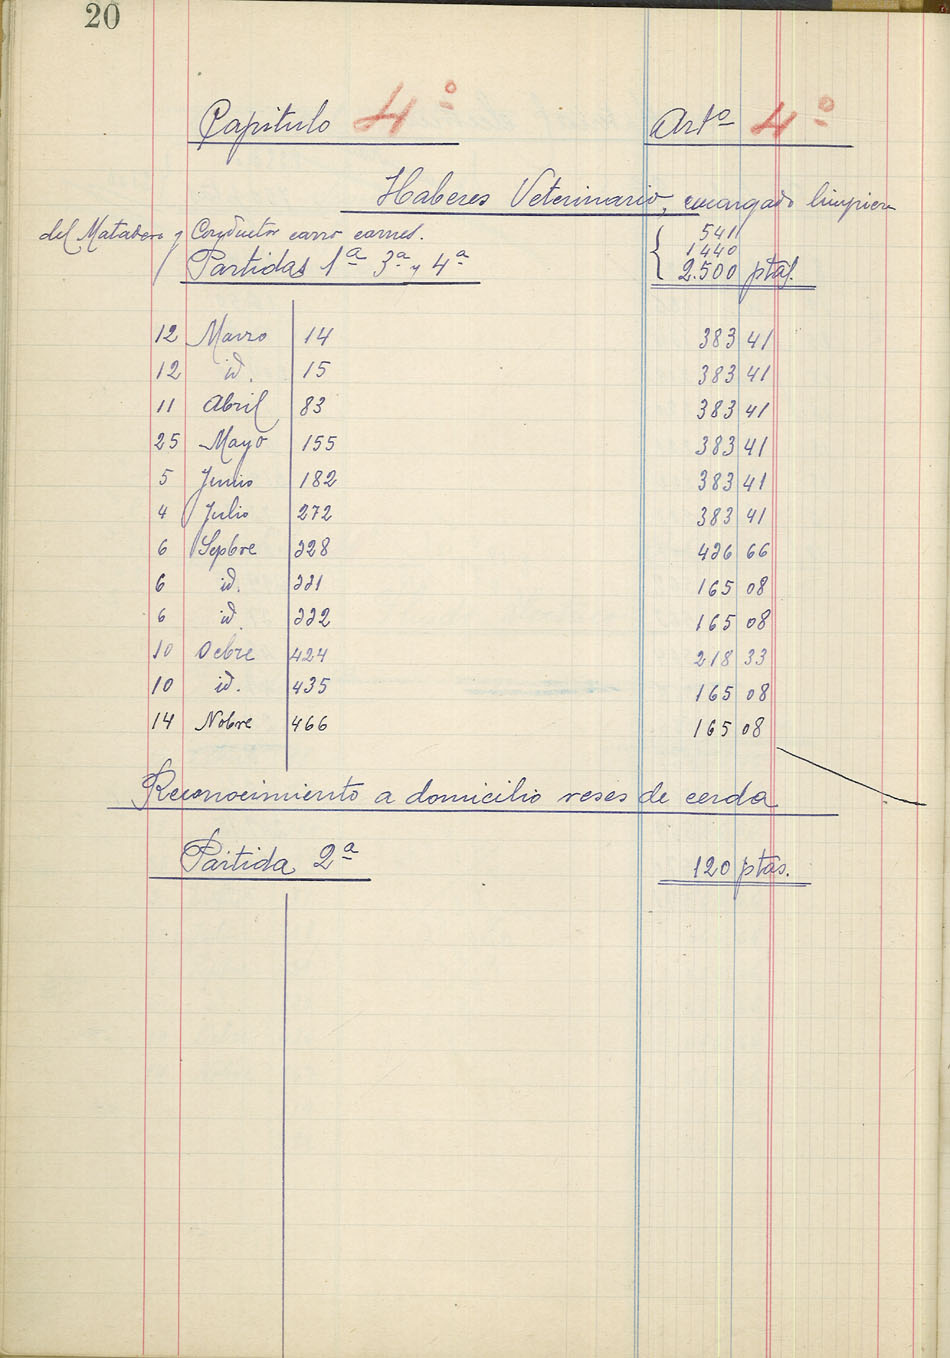 20
Capitulo 4º Artº 4º
Haberes Veterinario, encargado limpieza
del Matadero y Conductor carro carnes. 541
1440
Partidas 1ª 3ª y 4ª 2.500 ptas.
12 Marzo 14 383 41
12 id. 15 383 41
11 Abril 83 383 41
25 Mayo 155 383 41
5 Junio 182 383 41
4 Julio 272 383 41
6 Sepbre 328 426 66
6 id. 331 165 08
6 id. 332 165 08
10 Ocbre 424 218 33
10 id. 435 165 08
14 Nobre 466 165 08
Reconocimiento a domicilio reses de cerda
Partida 2ª 120 ptas.